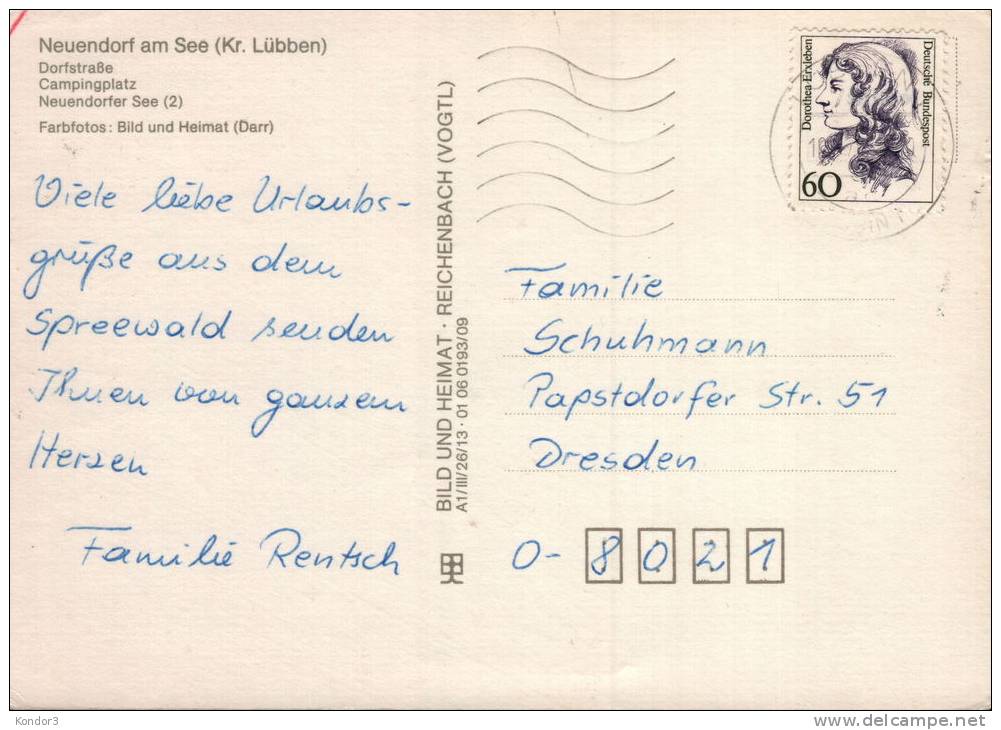 Neuendorf am See (Kr. Lübben)
Dorfstraße
Campingplatz
Neuendorfer See (2)
Farbfotos: Bild und Heimat (Darr)
Viele liebe Urlaubs-
grüße aus dem
Spreewald senden
Ihnen von ganzem
Herzen
Familie Rentsch
BILD UND HEIMAT · REICHENBACH (VOGTL)
A1/III/26/13 · 01 06 0193/09
Dorothea Erxleben
Deutsche Bundespost
60
Familie
Schuhmann
Papstdorfer Str. 51
Dresden
O- 8021
Kondor3
www.delcampe.net